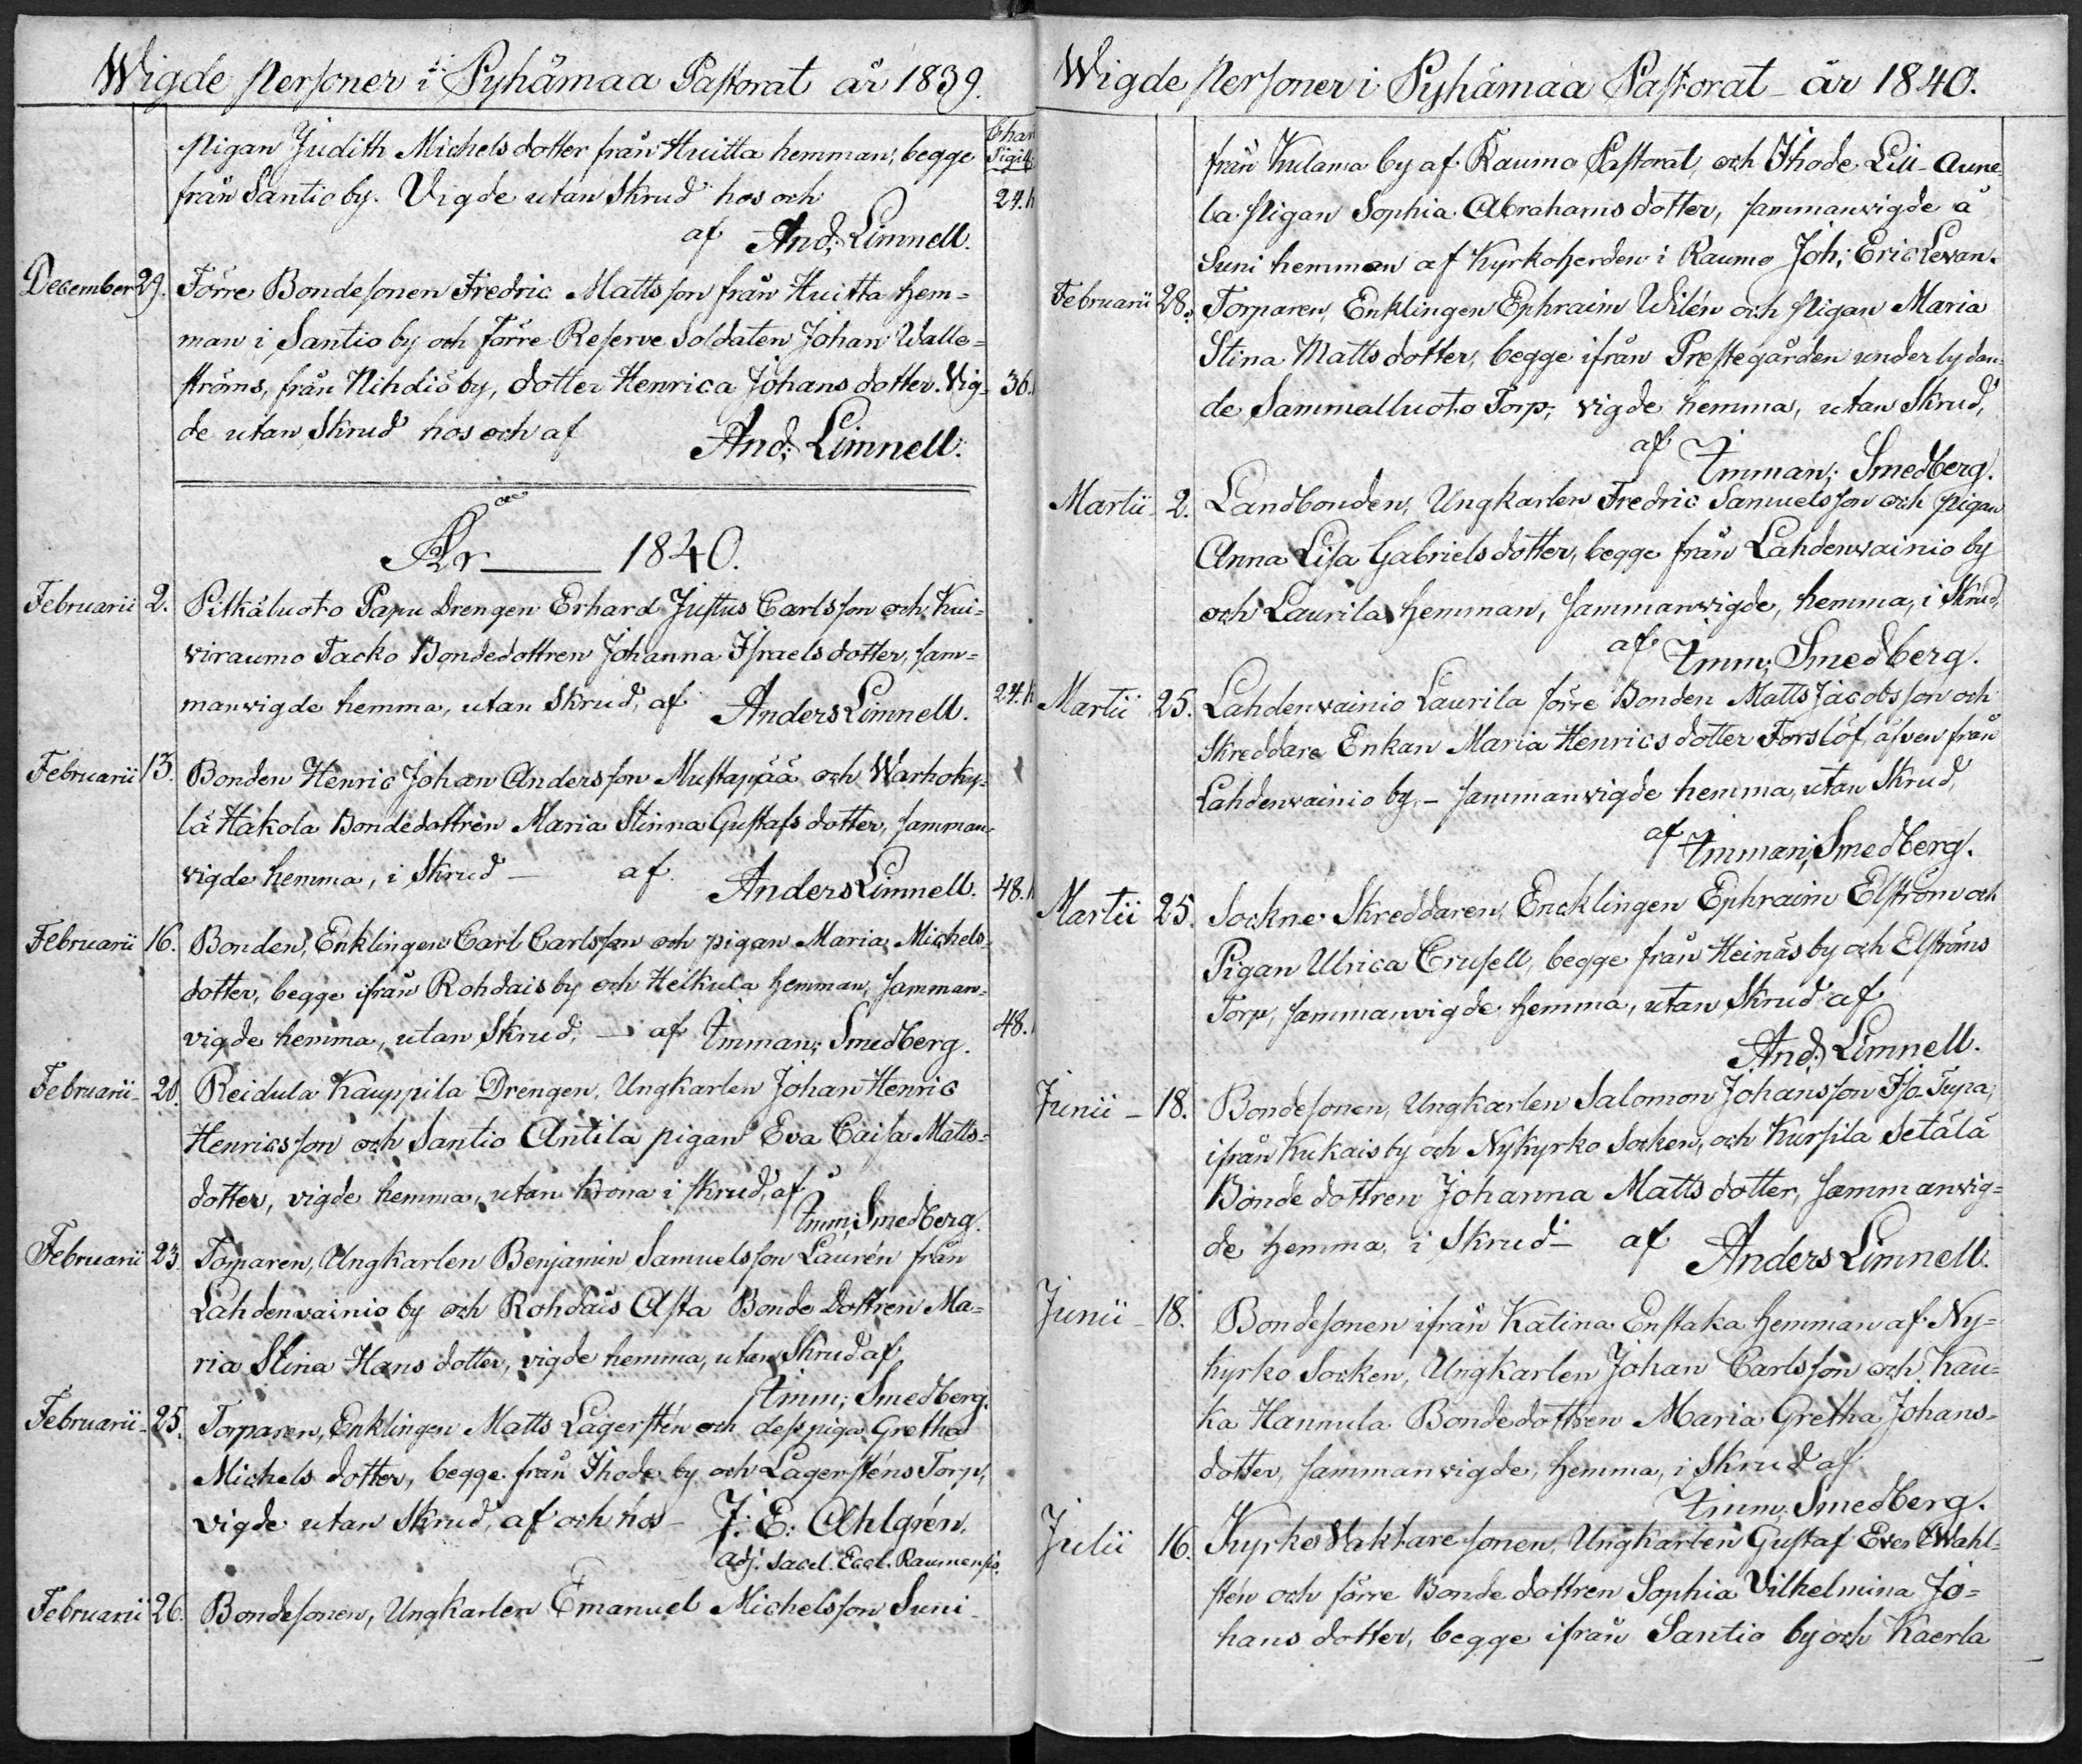 Wigde personer i Pyhämaa Pastorat år 1839.
Char
Sigill:
pigan Judith Michels dotter från Huitta hemman, begge
från Santio by. Vigde utan Skrud hos och 24.k
af And: Limnell.
December 29. Förre Bondesonen Fredric Mattsson från Huitta hem=
man i Santio by och förre Reserve Soldaten Johan Walle=
ströms, från Nihdiö by, dotter Henrica Johans dotter. Vig= 36.
de utan Skrud hos och af And: Limnell.
År 1840.
Februarii 2. Pitkäluoto Papu Drengen Erhard Justus Carlsson och Kui=
viraumo Tacko Bondedottren Johanna Israels dotter, sam=
manvigde hemma, utan Skrud, af Anders Limnell. 24.k
Februarii 13. Bonden Henric Johan Andersson Mustapää och Warhoky=
lä Hakola Bondedottren Maria Stinna Gustafs dotter, samman=
vigde hemma, i Skrud – af Anders Limnell. 48.k
Februarii 16. Bonden, Enklingen Carl Carlsson och pigan Maria Michels=
dotter, begge ifrån Rohdais by och Heikula hemman, samman=
vigde hemma, utan Skrud, – af Imman; Smedberg. 48.
Februarii 20. Reidula Kauppila Drengen, Ungkarlen Johan Henric
Henricsson och Santio Antila pigan Eva Caisa Matts=
dotter, vigde hemma, utan krona i skrud, af
Imm; Smedberg.
Februarii 23. Torparen, Ungkarlen Benjamin Samuelsson Laurén från
Lahdenvainio by och Rohdais Asta Bonde Dottren Ma=
ria Stina Hans dotter, vigde hemma, utan Skrud af
Imm; Smedberg.
Februarii 25. Torparen, Enklingen Matts Lagerstén och dess piga Gretha
Michels dotter, begge från Ihode by och Lagersténs Torp,
vigde utan Skrud, af och hos – J: E: Ahlgrén.
adj. Sacel. Eccl. Raumensis.
Februarii 26. Bondesonen, Ungkarlen Emanuel Michelsson Suni
Wigde personer i Pyhämaa Pastorat år 1840.
från Kulama by af Raumo Pastorat, och Ihode Lill-Aune
la pigan Sophia Abrahams dotter, sammanvigde å
Suni hemman af Kyrkoherden i Raumo Joh: Eric Levan.
Februarii 28. Torparen, Enklingen Ephraim Wilén och pigan Maria
Stina Matts dotter, begge ifrån Prestegården underlydan=
de Sammalluoto Torp, vigde hemma, utan Skrud,
af Imman; Smedberg.
Martii 2. Landbonden, Ungkarlen Fredric Samuelsson och pigan
Anna Lisa Gabriels dotter, begge från Lahdenvainio by
och Laurila hemman, sammanvigde, hemma, i Skrud,
af Imm; Smedberg.
Martii 25. Lahdenvainio Laurila förre Bonden Matts Jacobsson och
Skreddare Enkan Maria Henrics dotter Forslöf, äfven från
Lahdenvainio by, – sammanvigde hemma, utan Skrud,
af Imman; Smedberg.
Martii 25. Sockne Skreddaren, Encklingen Ephraim Elström och
Pigan Ulrica Crusell, begge från Heinäs by och Elströms
Torp, sammanvigde hemma, utan Skrud af
And: Limnell.
Junii – 18. Bondesonen, Ungkarlen Salomon Johansson Iso-Tupa,
ifrån Kukais by och Nykyrko Socken, och Kursila Setälä
Bonde dottren Johanna Matts dotter, sammanvig=
de hemma, i Skrud – af Anders Limnell.
Junii – 18. Bondesonen ifrån Katina Enstaka hemman af Ny=
kyrko Socken, Ungkarlen Johan Carlsson och Kau=
ka Hannula Bondedottren Maria Gretha Johans=
dotter, sammanvigde, hemma, i Skrud af
Imm; Smedberg.
Julii 16. Kyrko Waktare sonen, Ungkarlen Gustaf Evert Wahl=
stén och förre Bonde dottren Sophia Vilhelmina Jo=
hans dotter, begge ifrån Santio by och Kaerla